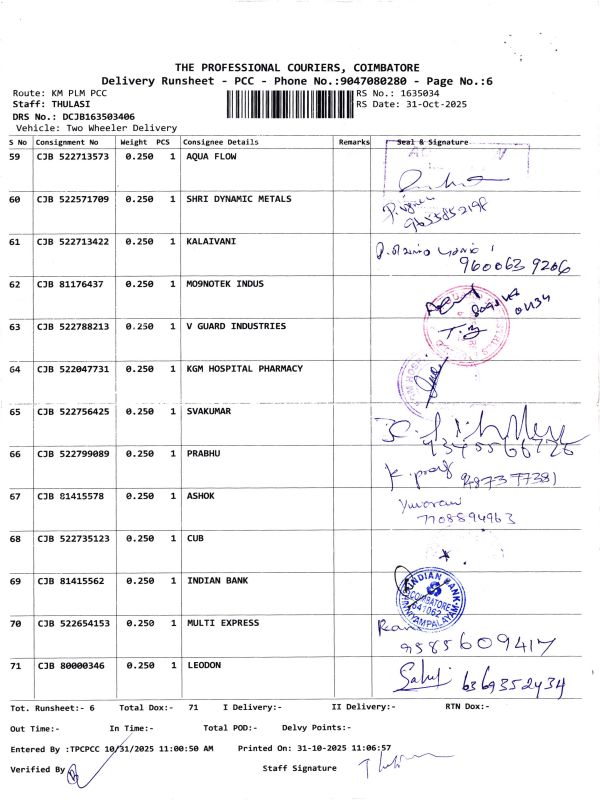 THE PROFESSIONAL COURIERS, COIMBATORE
Delivery Runsheet - PCC - Phone No.:9047080280 - Page No.:6
Route: KM PLM PCC RS No.: 1635034
Staff: THULASI RS Date: 31-Oct-2025
DRS No.: DCJB163503406
Vehicle: Two Wheeler Delivery
S No Consignment No Weight PCS Consignee Details Remarks Seal & Signature
59 CJB 522713573 0.250 1 AQUA FLOW
60 CJB 522571709 0.250 1 SHRI DYNAMIC METALS
9655852198
61 CJB 522713422 0.250 1 KALAIVANI
9600639206
62 CJB 81176437 0.250 1 MO9NOTEK INDUS
63 CJB 522788213 0.250 1 V GUARD INDUSTRIES
64 CJB 522047731 0.250 1 KGM HOSPITAL PHARMACY
65 CJB 522756425 0.250 1 SVAKUMAR
66 CJB 522799089 0.250 1 PRABHU
67 CJB 81415578 0.250 1 ASHOK
Yuvaraj
7708894963
68 CJB 522735123 0.250 1 CUB
69 CJB 81415562 0.250 1 INDIAN BANK
INDIAN BANK
COIMBATORE
641062
70 CJB 522654153 0.250 1 MULTI EXPRESS
9585609417
71 CJB 80000346 0.250 1 LEODON
6369352434
Tot. Runsheet:- 6 Total Dox:- 71 I Delivery:- II Delivery:- RTN Dox:-
Out Time:- In Time:- Total POD:- Delvy Points:-
Entered By :TPCPCC 10/31/2025 11:00:50 AM Printed On: 31-10-2025 11:06:57
Verified By Staff Signature